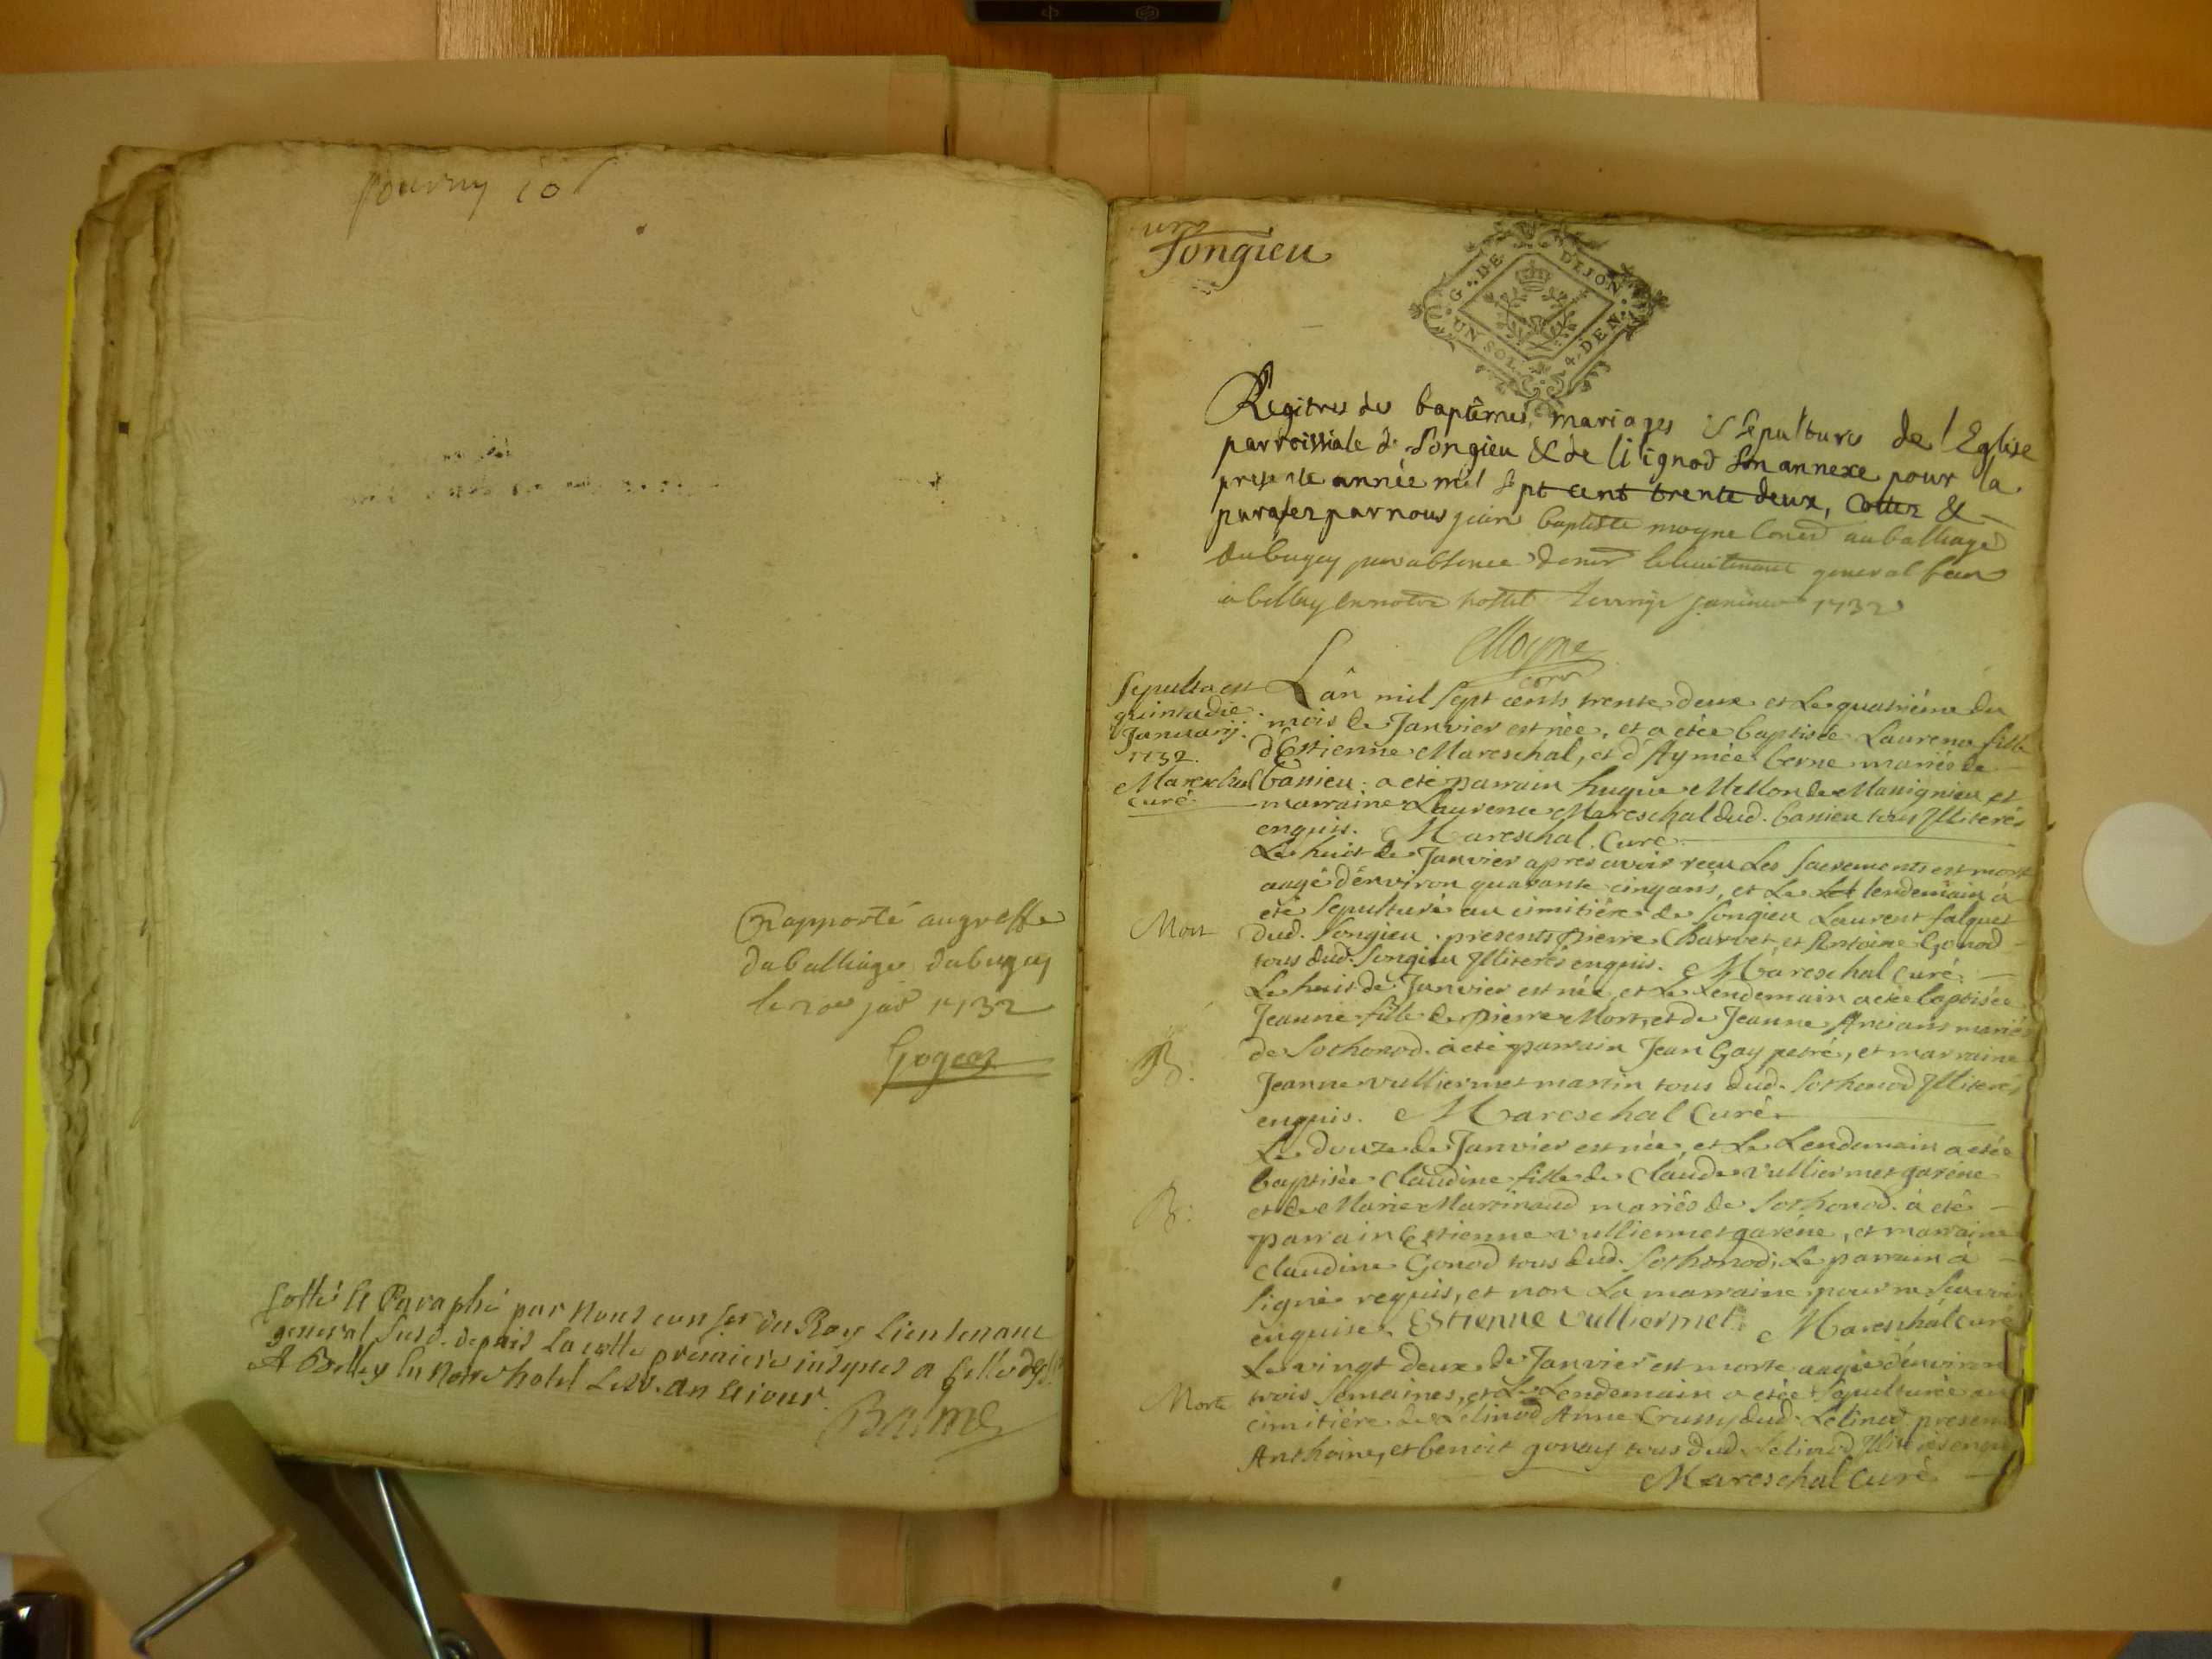 Rapporté au greffe
du balliage du bugey
le 20e jav 1732
Gogeat
Cotté & Paraphé par Nous con.er du Roy Lieutenant
general susd. depuis la cotte premiere jusques a
A Belley en notre hotel Les an & jour
Balme
Songieu
G. DE DIJON
UN SOL 4 DEN.
Regitres des baptêmes, mariages & sepultures de l'Eglise
parroissiale de Songieu & de lilignod son annexe pour la
presente année mil sept cent trente deux, cottez &
parafez par nous jean baptiste moyne Coner au balliage
du bugey par absence de mr le lieutenant general fait
a belley en notre hostel le janvier 1732
Moyne
Sepulta est
quinta die
Januarij
1732.
Mareschal
curé
L'ân mil sept cents trente deux et le quatriéme du
mois de Janvier est née, et a etée baptisée Laurena fille
d'Estienne Mareschal, et d'Aymée berne mariés de
bassieu. a eté parrain hugue Millon de Massignieu et
marraine Laurence Mareschal dud. bassieu tous Illiterés
enquis. Mareschal. Curé
Le huit de Janvier apres avoir reçu Les sacrements est mort
aagé d'environ quarante cinq ans, et Le lendemain à
eté sepulturé au cimitiére de Songieu Laurent falquet
Mort
dud. Songieu. presents pierre Charvet et Antoine Gonod
tous dud. Songieu Illiterés enquis. Mareschal curé.
Le huit de Janvier est née et Le Lendemain a etée baptisée
Jeanne fille de pierre Mort, et de Jeanne Ancians mariés
B.
de Sothonod. à eté parrain Jean Gay petré, et marraine
Jeanne vulliermet martin tous dud. Sothonod Illiterés
enquis. Mareschal Curé.
Le douze de Janvier est née, et Le Lendemain a etée
baptisée Claudine fille de Claude vulliermet garéne
B:
et de Marie Martinaud mariés de Sothonod. à eté
parrain Estienne vulliermet garéne, et marraine
Claudine Gonod tous dud. Sothonod; Le parrain à
signé requis, et non La marraine pour ne sçavoir
enquise. Estienne vulliermet Mareschal curé
Le vingt deux de Janvier est morte aagée d'environ
Morte
trois semaines, et Le Lendemain a etée sepulturée au
cimitiére de Lelinod Anne Crussy dud. Lelinod. presents
Anthoine, et benoit gonay tous dud. Lelinod Illiterés enquis
Mareschal Curé